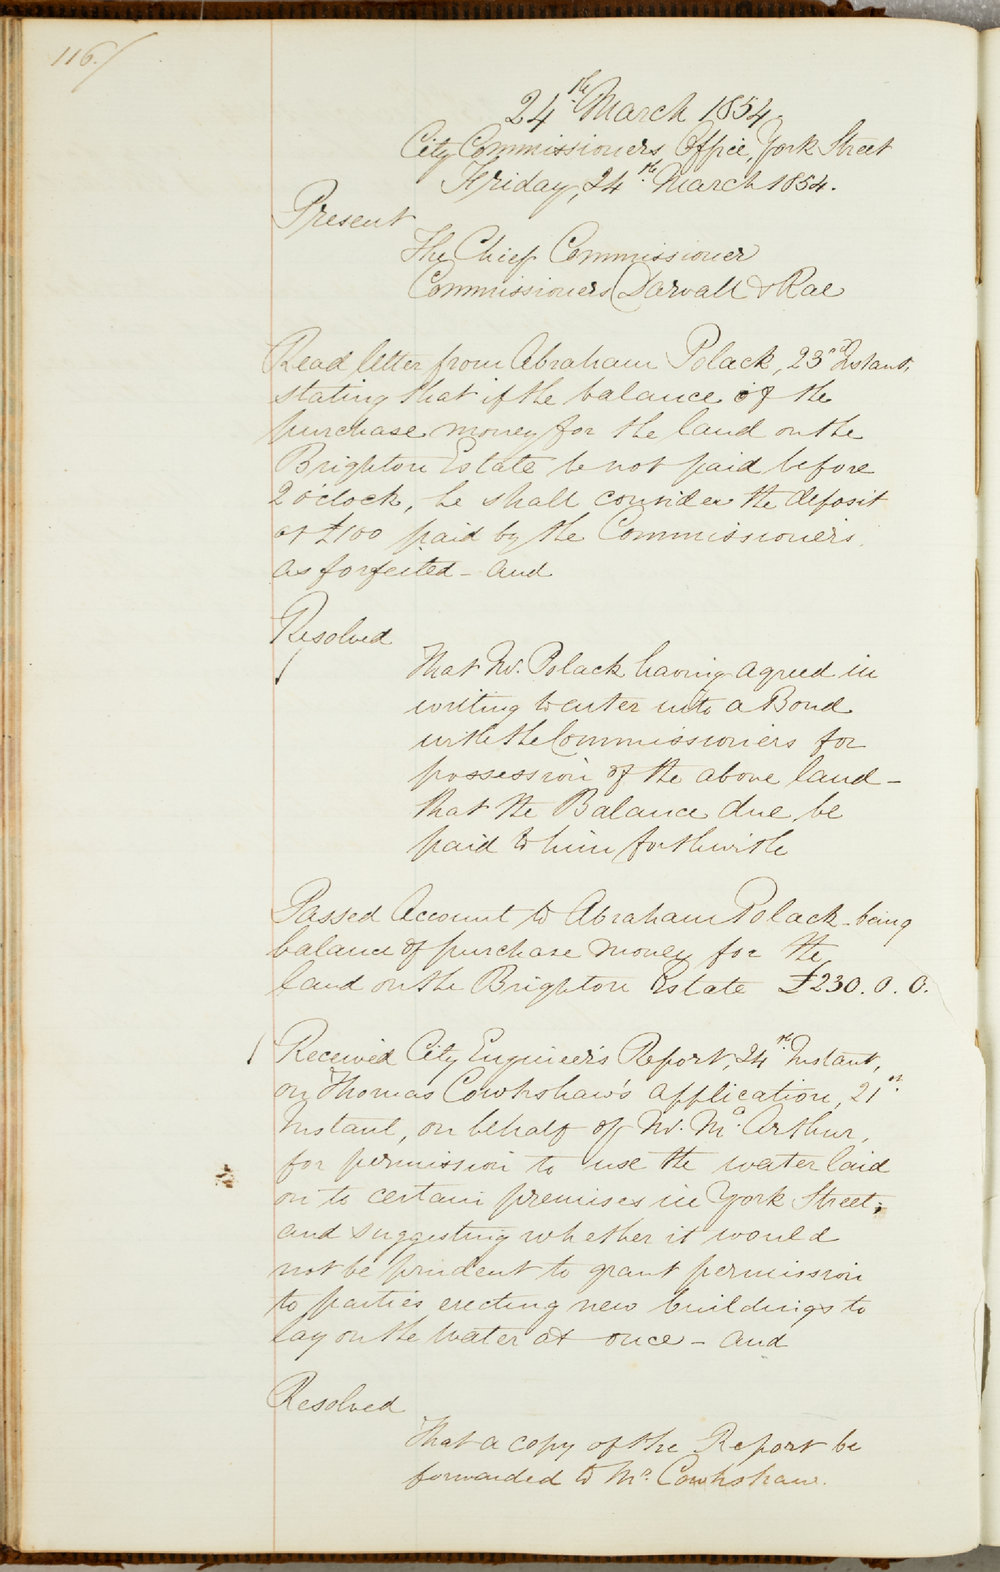 116./
24th March 1854.
City Commissioners Office, York Street
Friday, 24th March 1854.
Present
The Chief Commissioner
Commissioners Darvall & Rae
Read letter from Abraham Polack, 23rd Instant,
stating that if the balance of the
purchase money for the land on the
Brighton Estate be not paid before
2 o'clock, he shall consider the deposit
of £100 paid by the Commissioners
as forfeited - and
Resolved
That Mr. Polack having agreed in
writing to enter into a Bond
with the Commissioners for
possession of the above land -
that the Balance due be
paid to him forthwith
Passed Account to Abraham Polack - being
balance of purchase money for the
land on the Brighton Estate £230. 0. 0.
Received City Engineer's Report, 24th Instant,
on Thomas Cowlishaw's application, 21st
Instant, on behalf of Mr. McArthur,
for permission to use the water laid
on to certain premises in York Street;
and suggesting whether it would
not be prudent to grant permission
to parties erecting new buildings to
lay on the water at once - and
Resolved
That a copy of the Report be
forwarded to Mr. Cowlishaw.